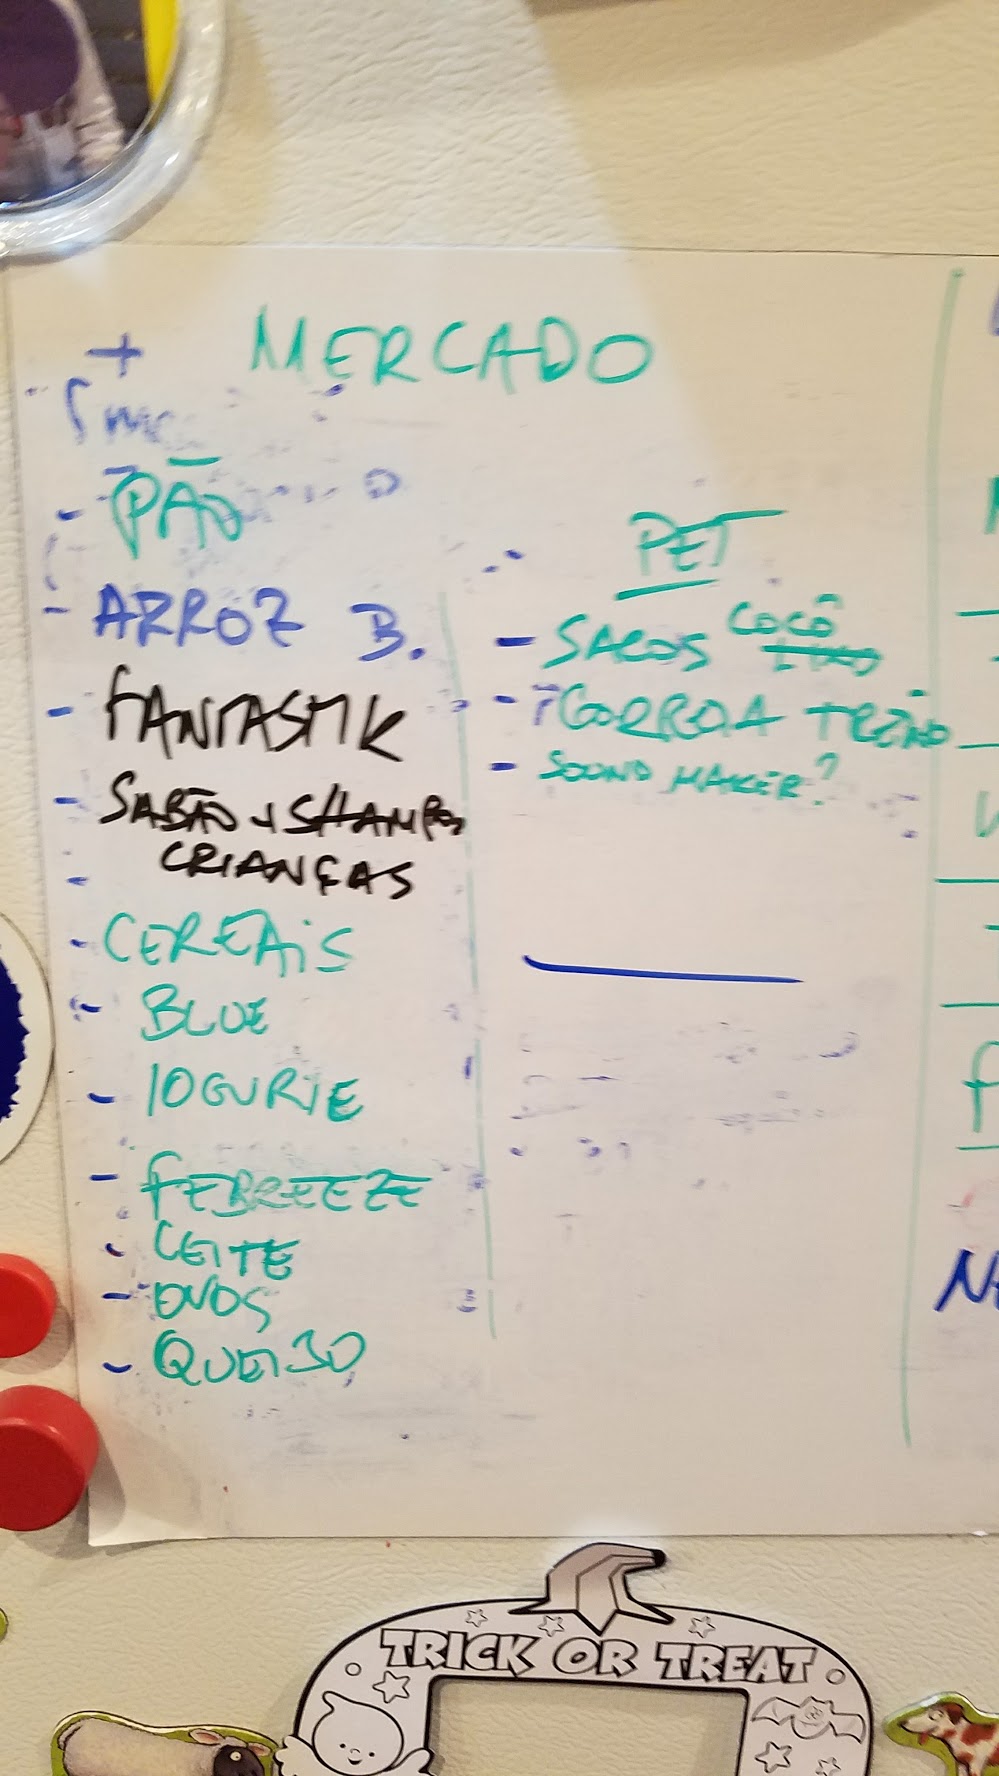 MERCADO
+
PÃO
- ARROZ B.
- FANTASTIK
- SABÃO + SHAMPOO
CRIANÇAS
- CEREAIS
- BLUE
- IOGURTE
- FEBREEZE
- LEITE
- OVOS
- QUEIJO
PET
- SACOS COCÔ LIXO
- GORROA TREINO
- SOUND MAKER?
TRICK OR TREAT